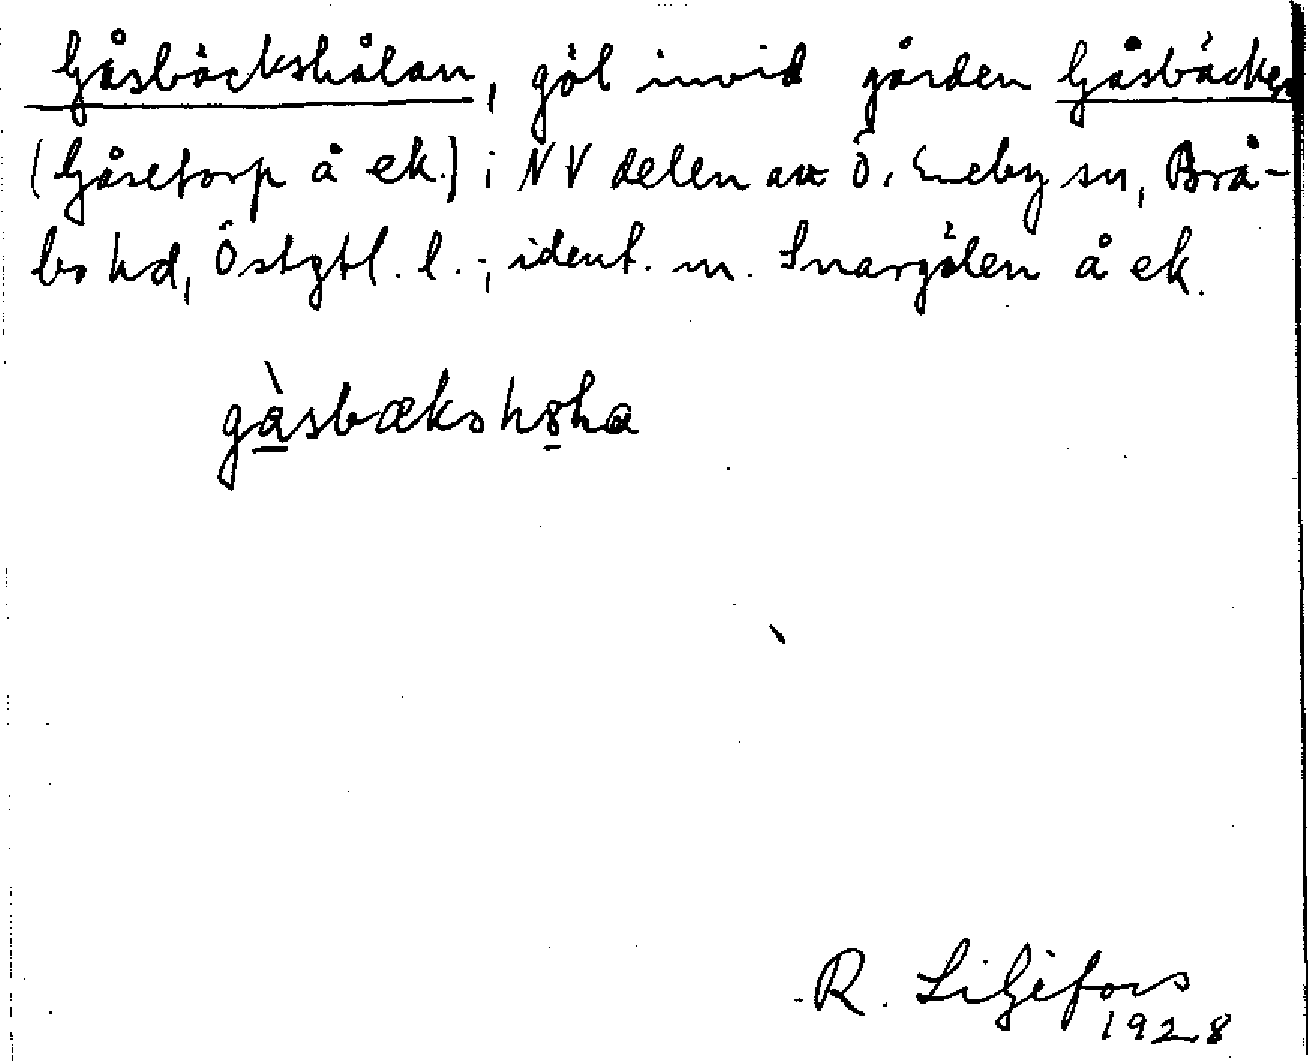 Gåsbäckshålan, göl invid gården Gåsbäcken
(Gåsetorp å ek.) i NV delen av Ö. Eneby sn, Brå-
bo hd, Östgtl. l.; ident. m. Snargölen å ek.
gàsbækshɷha
R. Liljefors
1928